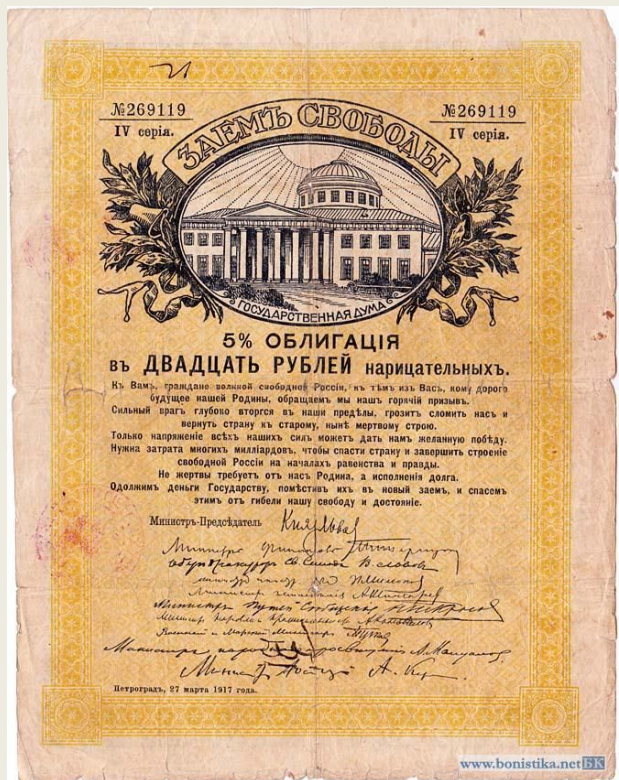 №269119
IV серія.
ЗАЕМЪ СВОБОДЫ
№269119
IV серія.
ГОСУДАРСТВЕННАЯ ДУМА
5% ОБЛИГАЦІЯ
въ ДВАДЦАТЬ РУБЛЕЙ нарицательныхъ.
Къ Вамъ, граждане великой свободной Россіи, къ тѣмъ изъ Васъ, кому дорого
будущее нашей Родины, обращаемъ мы нашъ горячій призывъ.
Сильный врагъ глубоко вторгся въ наши предѣлы, грозитъ сломить насъ и
вернуть страну къ старому, нынѣ мертвому строю.
Только напряженіе всѣхъ нашихъ силъ можетъ дать намъ желанную побѣду.
Нужна затрата многихъ милліардовъ, чтобы спасти страну и завершить строеніе
свободной Россіи на началахъ равенства и правды.
Не жертвы требуетъ отъ насъ Родина, а исполненія долга.
Одолжимъ деньги Государству, помѣстивъ ихъ въ новый заемъ, и спасемъ
этимъ отъ гибели нашу свободу и достояніе.
Министръ-Предсѣдатель Князь Львов
Министръ финансовъ
Министръ Путей Сообщенія
Военный и Морской Министръ
Министръ народнаго просвѣщенія
Министръ Юстиціи А. Кер
Петроградъ, 27 марта 1917 года.
www.bonistika.net БК